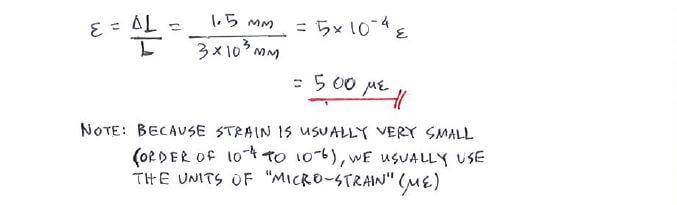 ε = ΔL / L = 1.5 MM / 3 × 10³ MM = 5 × 10⁻⁴ ε
= 500 με
NOTE: BECAUSE STRAIN IS USUALLY VERY SMALL
(ORDER OF 10⁻⁴ TO 10⁻⁶), WE USUALLY USE
THE UNITS OF "MICRO-STRAIN" (με)